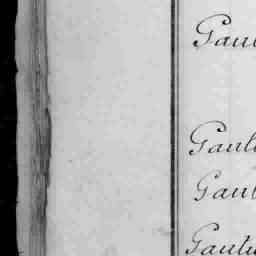 Gaul
Gaul
Gaul
Gaulu